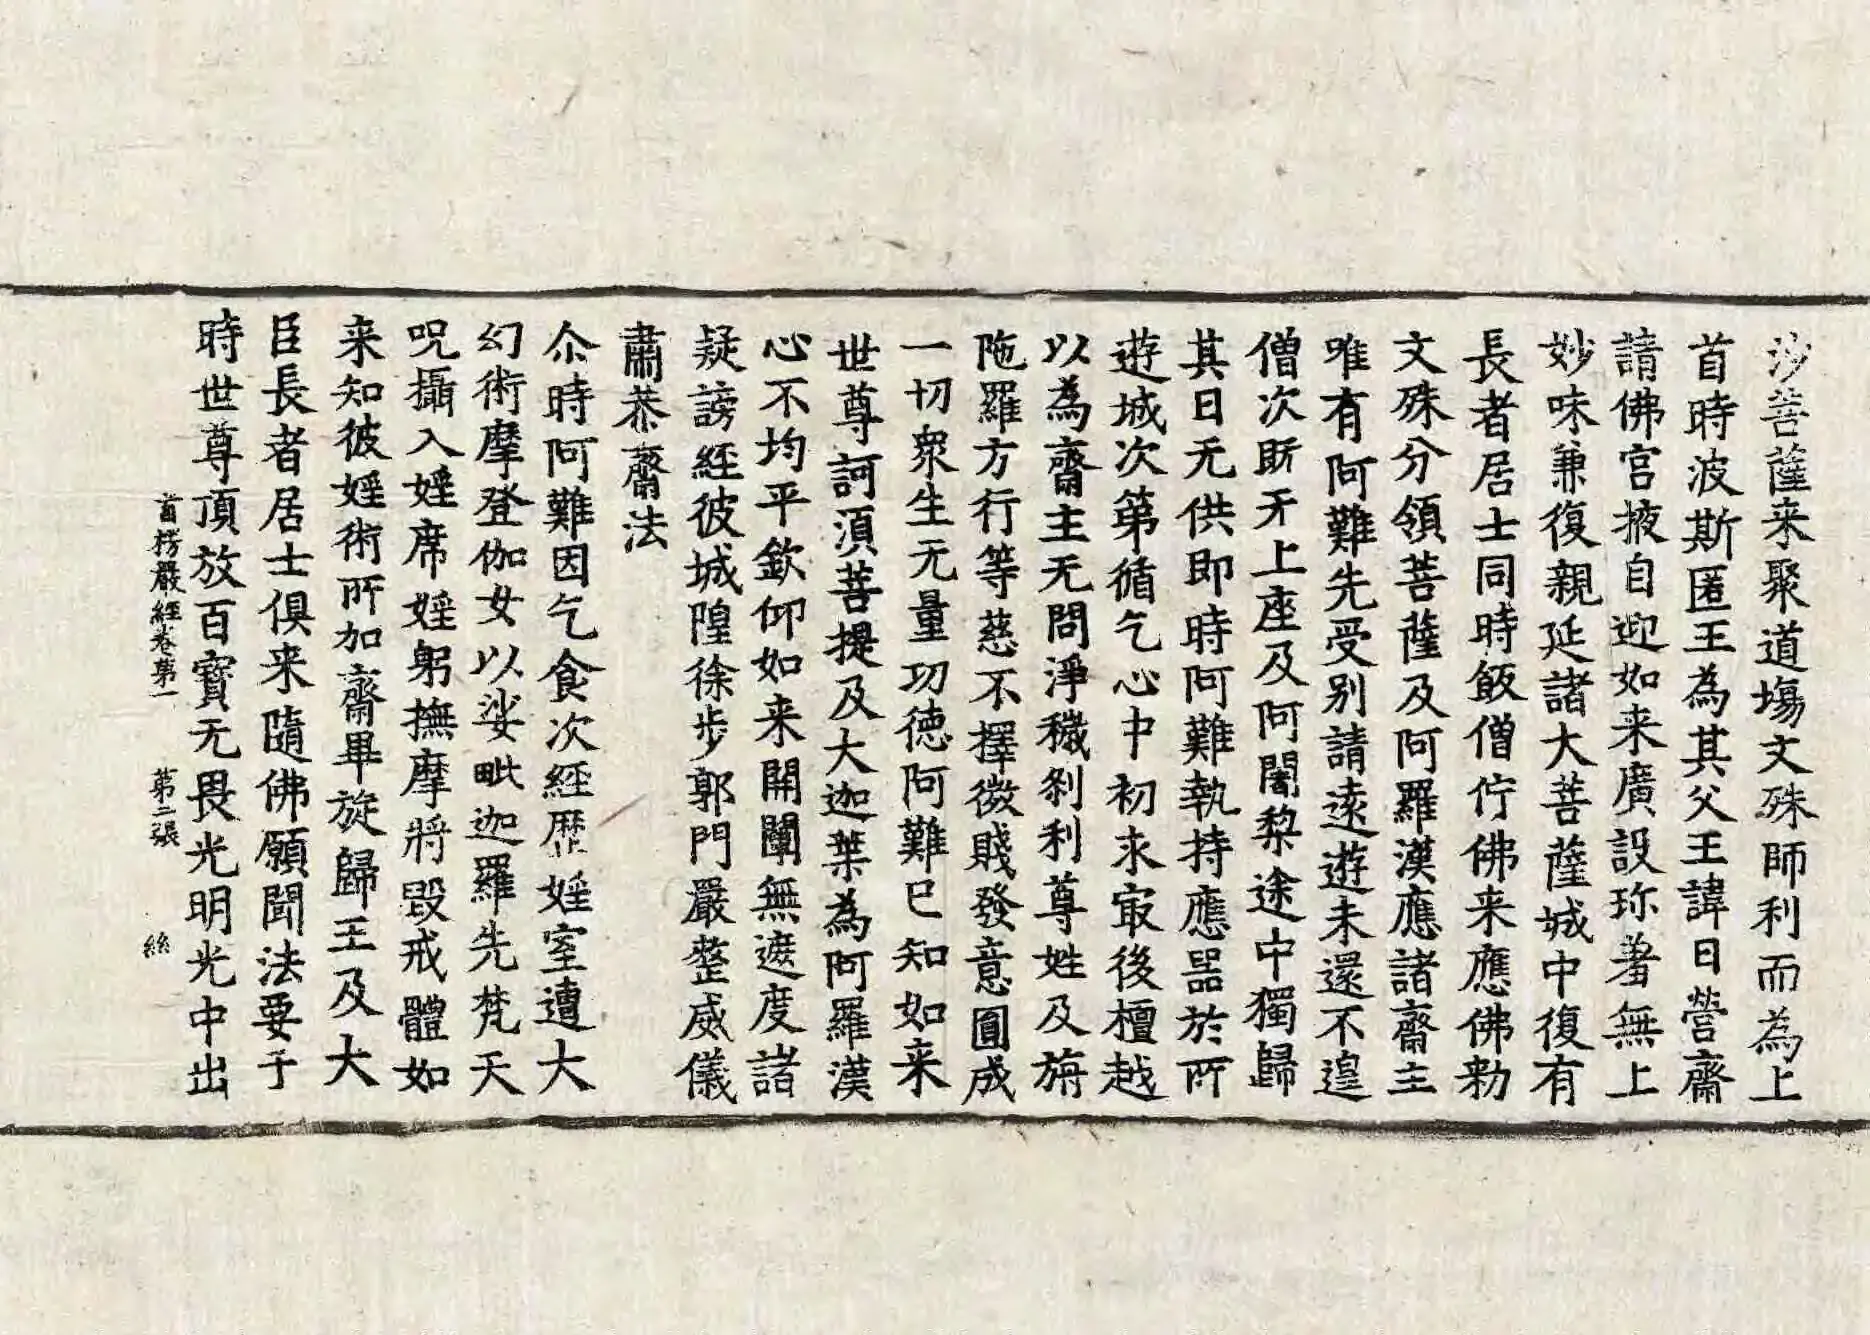 沙菩薩来聚道場文殊師利而為上
首時波斯匿王為其父王諱日營齋
請佛宮掖自迎如来廣設珎羞無上
妙味兼復親延諸大菩薩城中復有
長者居士同時飯僧佇佛来應佛勑
文殊分領菩薩及阿羅漢應諸齋主
唯有阿難先受別請遠遊未還不遑
僧次既无上座及阿闍黎途中獨歸
其日无供即時阿難執持應器於所
遊城次第循乞心中初求㝡後檀越
以為齋主无問淨穢刹利尊姓及旃
陁羅方行等慈不擇微賤發意圓成
一切衆生无量功德阿難已知如来
世尊訶須菩提及大迦葉為阿羅漢
心不均平欽仰如来開闡無遮度諸
疑謗經彼城隍徐步郭門嚴整威儀
肅恭齋法
尒時阿難因乞食次經歷婬室遭大
幻術摩登伽女以娑毗迦羅先梵天
呪攝入婬席婬躬撫摩將毀戒體如
来知彼婬術所加齋畢旋歸王及大
臣長者居士俱来隨佛願聞法要于
時世尊頂放百寶无畏光明光中出
首楞嚴經卷第一　第二張　絲